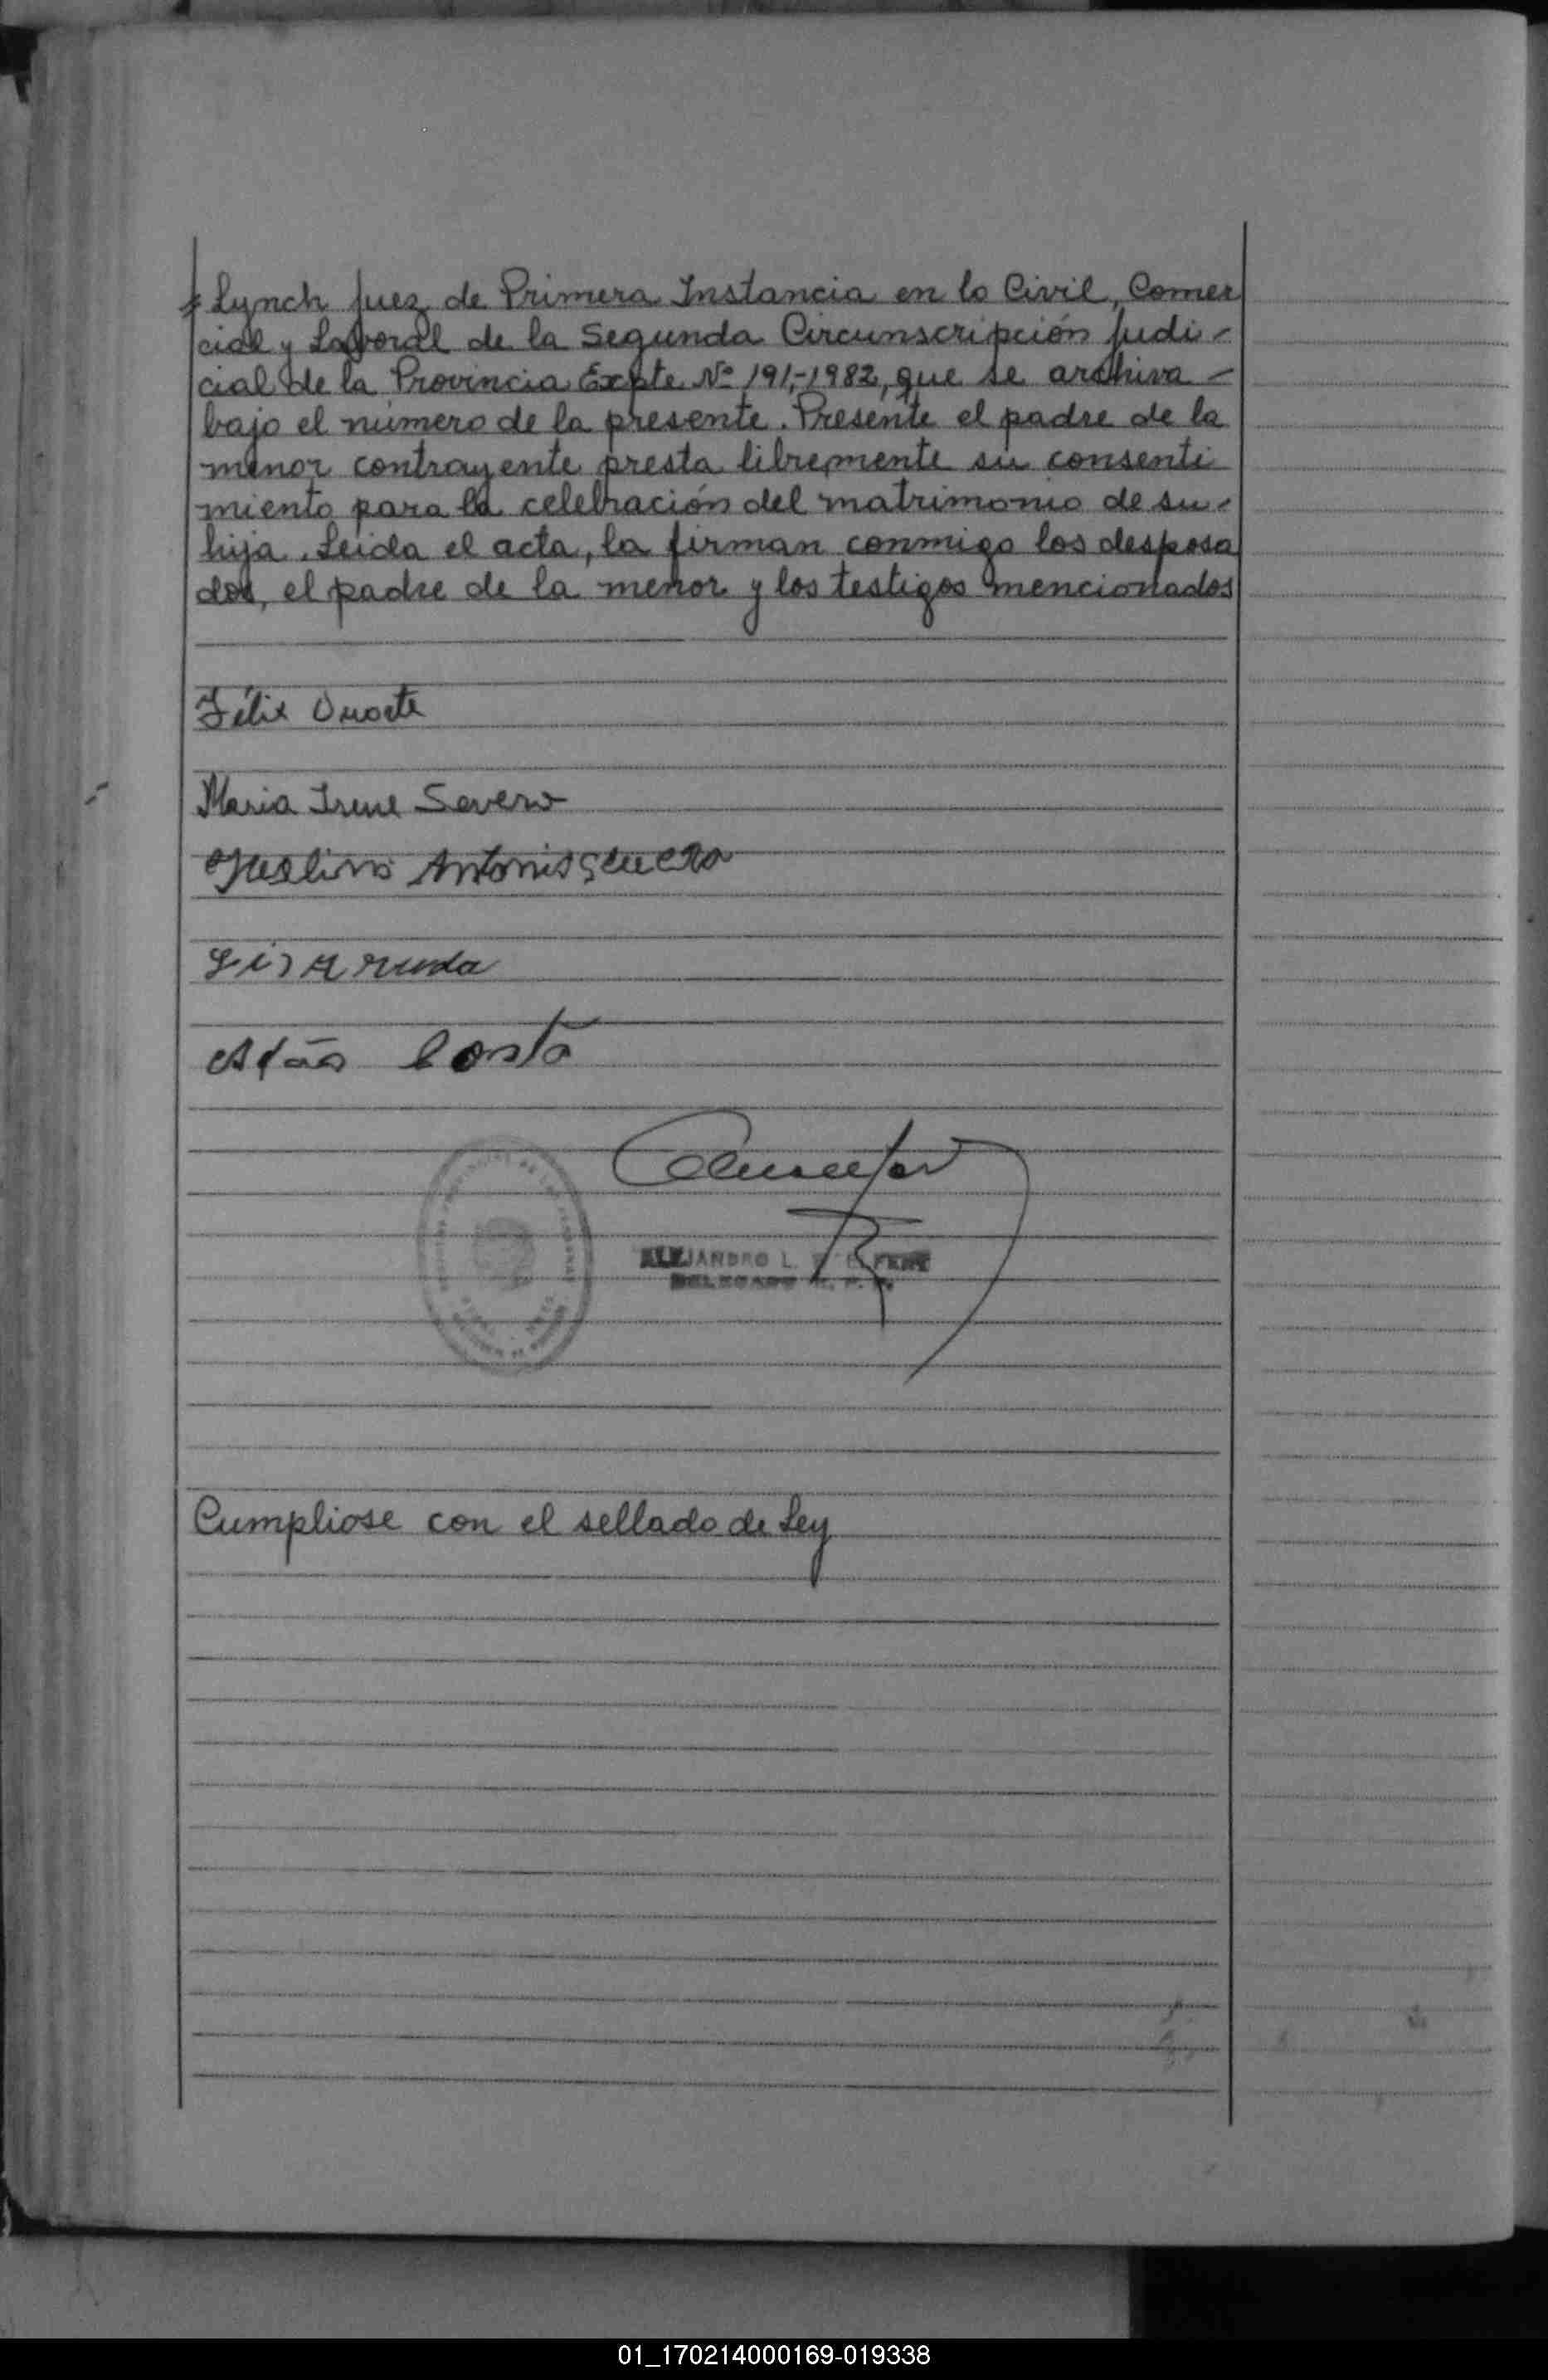 Lynch Juez de Primera Instancia en lo Civil, Comer
cial y Laboral de la Segunda Circunscripción Judi-
cial de la Provincia Expte Nº 191,-1982, que se archiva -
bajo el número de la presente. Presente el padre de la
menor contrayente presta libremente su consenti
miento para la celebración del matrimonio de su-
hija. Leida el acta, la firman conmigo los desposa
dos, el padre de la menor y los testigos mencionados
Félix Duarte
Maria Irene Severo
Antonio
Adão Costa
ALEJANDRO L.
DELEGADO
Cumpliose con el sellado de Ley
01_170214000169-019338